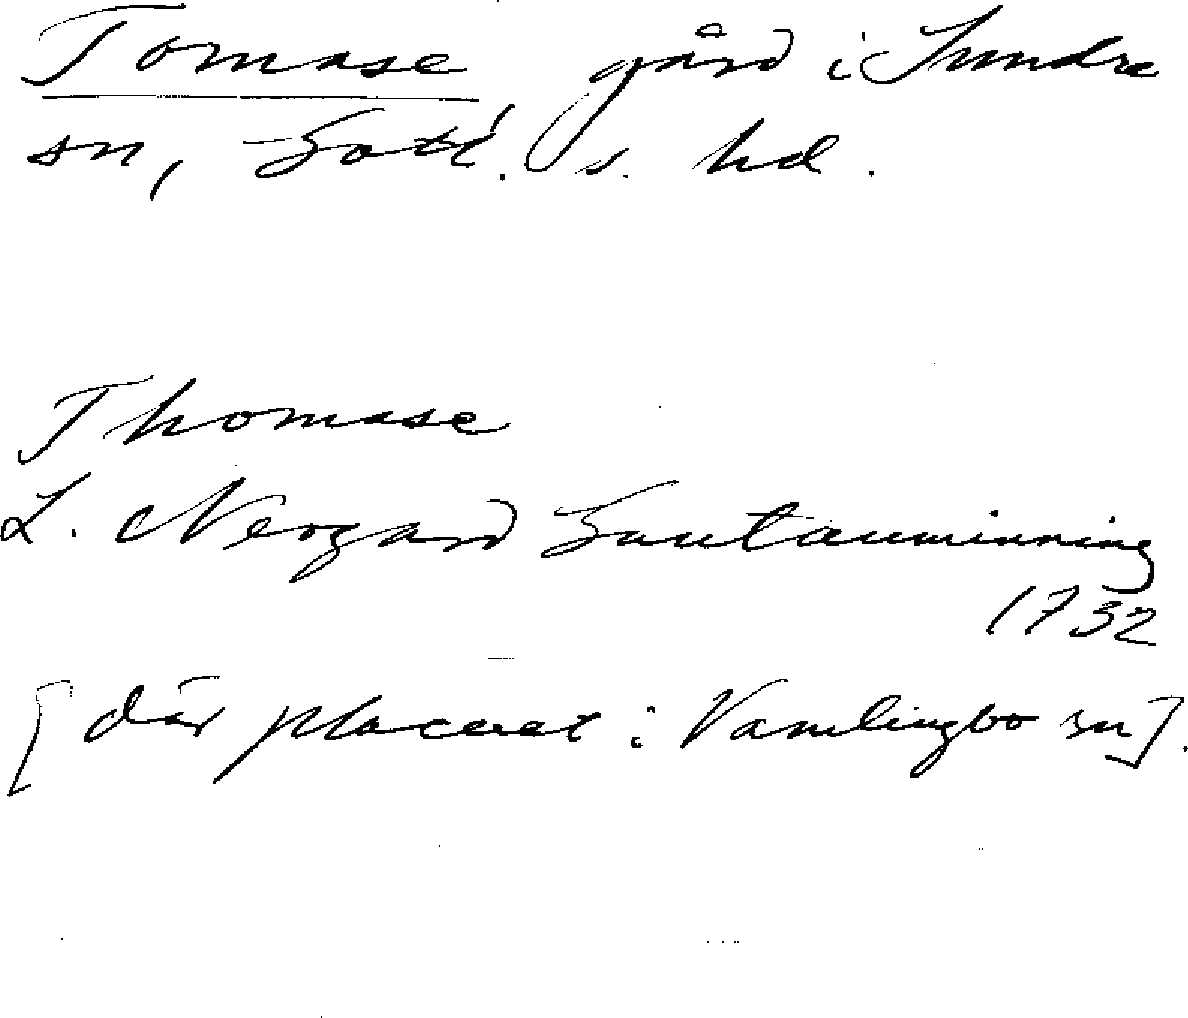 Tomase gård i Sundre
sn, Gotl. s. hd.
Thomase
L. Neogard Gautauminning
1732
[där placeret: Vamlingbo sn].